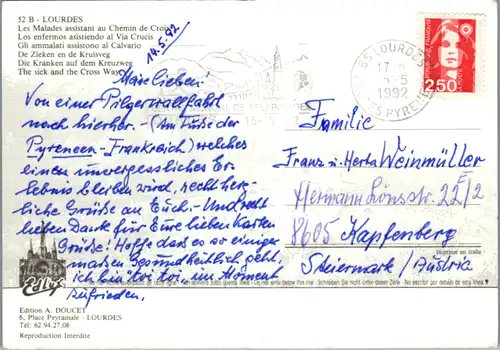 52 B - LOURDES
Les Malades assistant au Chemin de Croix
Los enfermos asistiendo al Via Crucis
Gli ammalati assistono al Calvario
De Zieken en de Kruisveg
Die Kranken auf dem Kreuzweg
The sick and the Cross Way
14.5.92
Meine Lieben!
Von einer Pilgerwallfahrt
noch hierher. (Am Fuße der
Pyreneen-Frankreich) welches
einen unvergessliches Er-
lebnis bleiben wird, recht herz-
liche Grüße an Euch. Und recht
lieben Dank für Eure lieben Karten
Grüße! Hoffe daß es so einiger-
maßen Gesundheitlich geht.
ich bin toi toi, im Moment
zufrieden.
65 LOURDES
17
5-5
1992
PYRENEES
2,50
Familie
Franz u. Herta Weinmüller
Hermann Lönsstr. 22/2
8605 Kapfenberg
Steiermark/Austria
Imprimé en Italie
Schreiben Sie nicht unter dieser Zeile - No escribir por debajo de esta
Edition A. DOUCET
6, Place Peyramale - LOURDES
Tél. 62.94.27.08
Reproduction Interdite